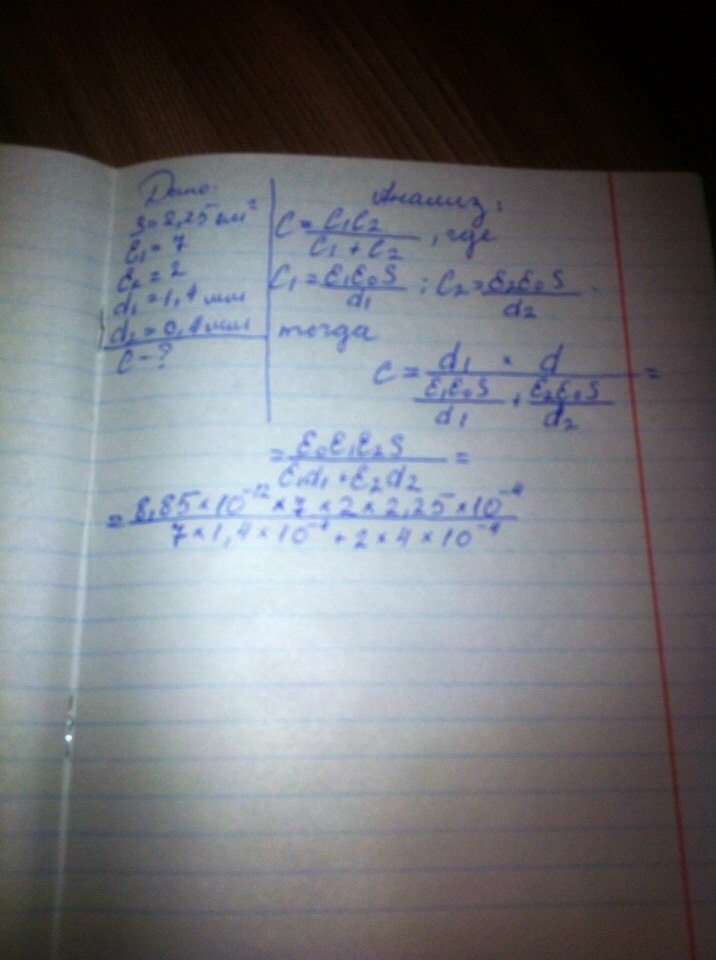 Дано:
S = 2,25 см²
ε₁ = 7
ε₂ = 2
d₁ = 1,4 мм
d₂ = 0,4 мм
C - ?
Анализ:
C = C₁C₂ / C₁ + C₂ , где
C₁ = ε₁ε₀S / d₁ ; C₂ = ε₂ε₀S / d₂ .
тогда
C = d₁ × d / ε₁ε₀S / d₁ + ε₂ε₀S / d₂ =
= ε₀ε₁ε₂S / ε₁d₁ + ε₂d₂ =
= 8,85 × 10⁻¹² × 7 × 2 × 2,25 × 10⁻⁴ / 7 × 1,4 × 10⁻⁴ + 2 × 4 × 10⁻⁴